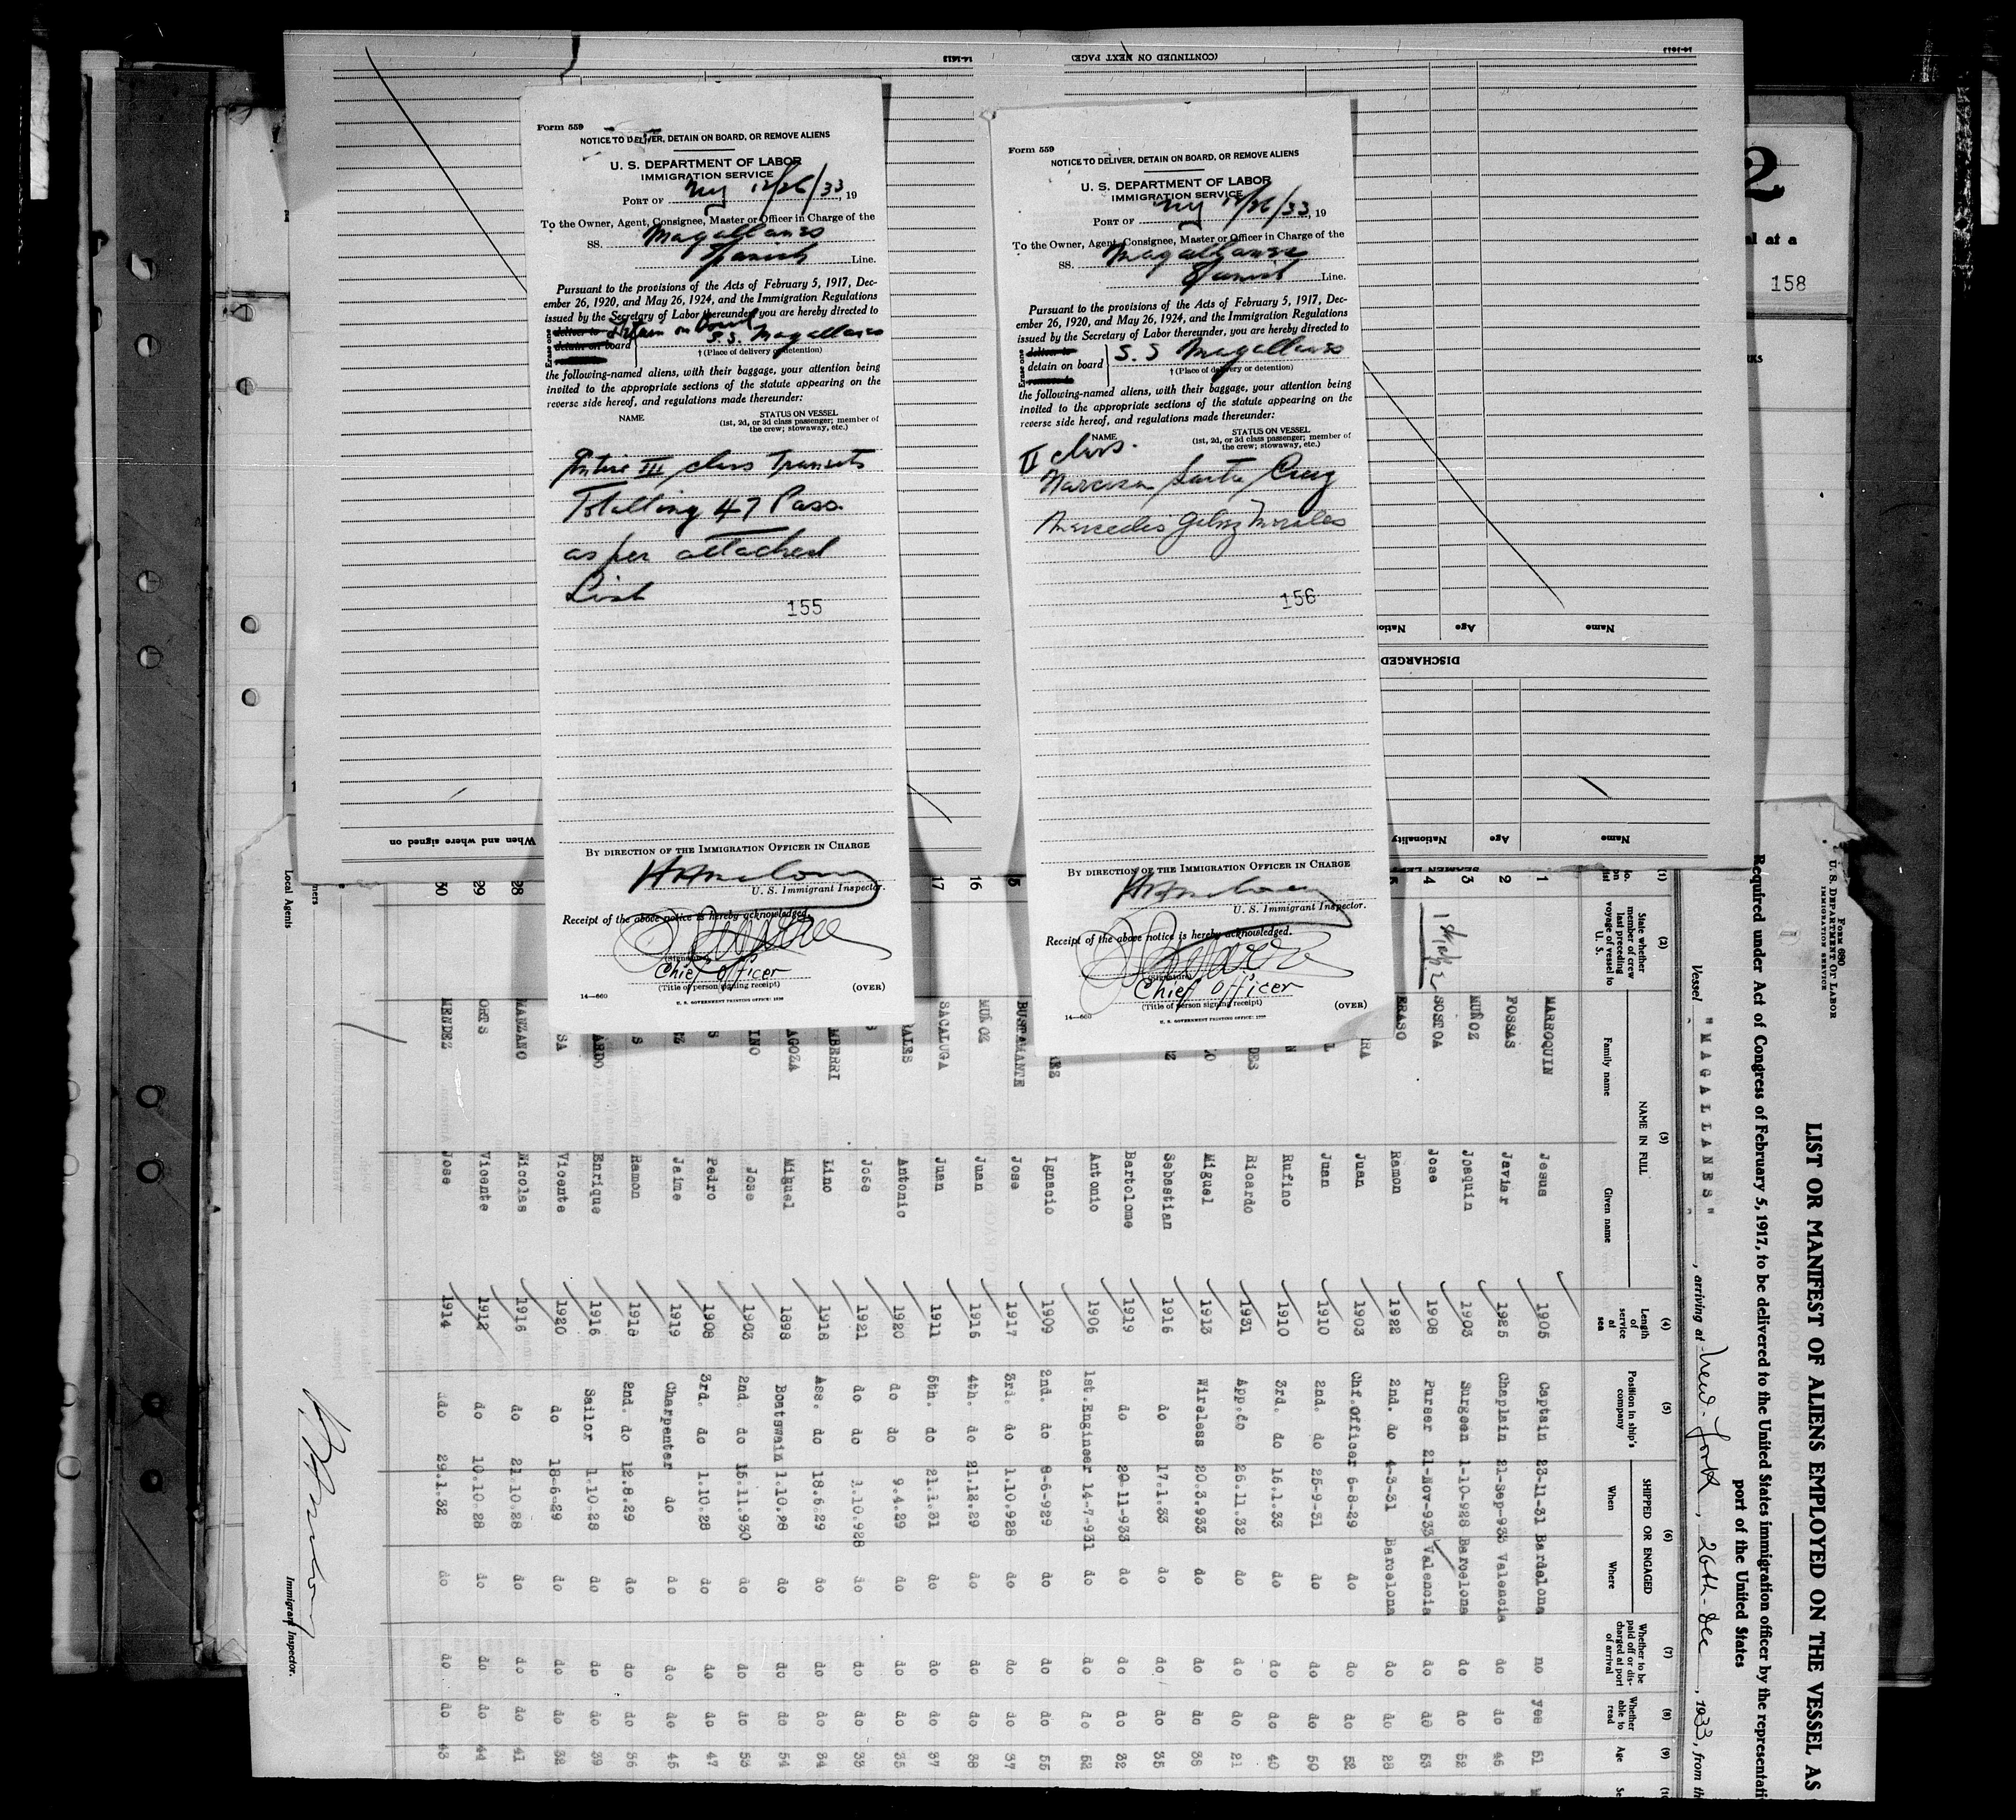 (CONTINUED ON NEXT PAGE)
14-1613
14-1613
Form 559
NOTICE TO DELIVER, DETAIN ON BOARD, OR REMOVE ALIENS
U. S. DEPARTMENT OF LABOR
IMMIGRATION SERVICE
PORT OF NY 12/26/33, 19
To the Owner, Agent, Consignee, Master or Officer in Charge of the
SS. Magallanes
Spanish Line.
Pursuant to the provisions of the Acts of February 5, 1917, Dec-
ember 26, 1920, and May 26, 1924, and the Immigration Regulations
issued by the Secretary of Labor thereunder, you are hereby directed to
Erase one
deliver to Detain on Board
detain on board S.S. Magallanes
† (Place of delivery or detention)
the following-named aliens, with their baggage, your attention being
invited to the appropriate sections of the statute appearing on the
reverse side hereof, and regulations made thereunder:
NAME
STATUS ON VESSEL
(1st, 2d, or 3d class passenger; member of
the crew; stowaway, etc.)
Entire III class Transits
Totalling 47 Pass.
as per attached
List
155
BY DIRECTION OF THE IMMIGRATION OFFICER IN CHARGE
U. S. Immigrant Inspector.
Receipt of the above notice is hereby acknowledged.
(Signature)
Chief Officer
(Title of person signing receipt)
14—660
U. S. GOVERNMENT PRINTING OFFICE: 1930
(OVER)
Form 559
NOTICE TO DELIVER, DETAIN ON BOARD, OR REMOVE ALIENS
U. S. DEPARTMENT OF LABOR
IMMIGRATION SERVICE
PORT OF NY 12/26/33, 19
To the Owner, Agent, Consignee, Master or Officer in Charge of the
SS. Magallanes
Spanish Line.
Pursuant to the provisions of the Acts of February 5, 1917, Dec-
ember 26, 1920, and May 26, 1924, and the Immigration Regulations
issued by the Secretary of Labor thereunder, you are hereby directed to
Erase one
deliver to
detain on board S. S Magallanes
remove to
† (Place of delivery or detention)
the following-named aliens, with their baggage, your attention being
invited to the appropriate sections of the statute appearing on the
reverse side hereof, and regulations made thereunder:
NAME
STATUS ON VESSEL
(1st, 2d, or 3d class passenger; member of
the crew; stowaway, etc.)
II class.
Narcisa Santa Cruz
Mercedes Morales
156
BY DIRECTION OF THE IMMIGRATION OFFICER IN CHARGE
U. S. Immigrant Inspector.
Receipt of the above notice is hereby acknowledged.
(Signature)
Chief Officer
(Title of person signing receipt)
14—660
(OVER)
2
al at a
158
RKS
Name
Age
Nation
DISCHARGED
Name
Age
Nationality
When and where signed on
Form 680
U. S. DEPARTMENT OF LABOR
IMMIGRATION SERVICE
LIST OR MANIFEST OF ALIENS EMPLOYED ON THE VESSEL AS
Required under Act of Congress of February 5, 1917, to be delivered to the United States immigration officer by the representati
port of the United States
Vessel "MAGALLANES", arriving at New-York, 26th-Dec, 1933, from th
(1) (2) (3) (4) (5) (6) (7) (8) (9) (10
State whether member of crew last preceding voyage of vessel to U. S.
NAME IN FULL
Family name
Given name
Length of service at sea
Position in ship's company
SHIPPED OR ENGAGED
When
Where
Whether to be paid off or discharged at port of arrival
Whether able to read
Age
Se
1 MARROQUIN Jesus 1905 Captain 23-11-31 Bardelona no yes 51
2 FOSSAS Javier 1925 Chaplain 21-Sep-933 Valencia do do 46
3 MUÑOZ Joaquin 1903 Surgeon 1-10-928 Barcelona do do 52
4 SOSTOA Jose 1908 Purser 21-Nov-933 Valencia do do 53
5 ERASO Ramon 1922 2nd. do 4-3-31 Barcelona do do 28
IRA Juan 1903 Chf.Officer 6-8-29 do do do 52
L Juan 1910 2nd. do 25-9-31 do do do 50
N Rufino 1910 3rd. do 16.1.33 do do do 40
DES Ricardo 1931 App.do 26.11.32 do do do 21
O Miguel 1913 Wireless 20.3.933 do do do 38
Z Sebastian 1916 do 17.1.33 do do do 35
Bartolome 1919 do 20-11-933 do do do 32
Antonio 1906 1st.Engineer 14-7-931 do do do 52
EZ Ignacio 1909 2nd. do 8-6-929 do do do 55
15 BUSTAMANTE Jose 1917 3rd. do 1.10.928 do do do 37
16 MUÑOZ Juan 1916 4th. do 21.12.29 do do do 38
17 SACALUGA Juan 1911 5th. do 21.1.31 do do do 37
RALES Antonio 1920 do 9.4.29 do do do 35
S Jose 1921 do do 1.10.928 do do do 33
MBERRI Lino 1918 Ass. do 18.6.29 do do do 34
AGOZA Miguel 1898 Boatswain 1.10.28 do do do 54
INO Jose 1903 2nd. do 15.11.930 do do do 53
S Pedro 1908 3rd. do 1.10.28 do do do 47
EZ Jaime 1919 Charpenter do do do do 45
S Ramon 1918 2nd. do 12.8.29 do do do 36
ARDO Enrique 1916 Sailor 1.10.28 do do do 39
SA Vicente 1920 do 18-6-29 do do do 32
28 MANZANO Nicolas 1916 do 21.10.28 do do do 41
29 ORTS Vicente 1912 do 10.10.28 do do do 44
30 MENDEZ Jose 1914 do 29.1.32 do do do 43
Local Agents
Immigrant Inspector.